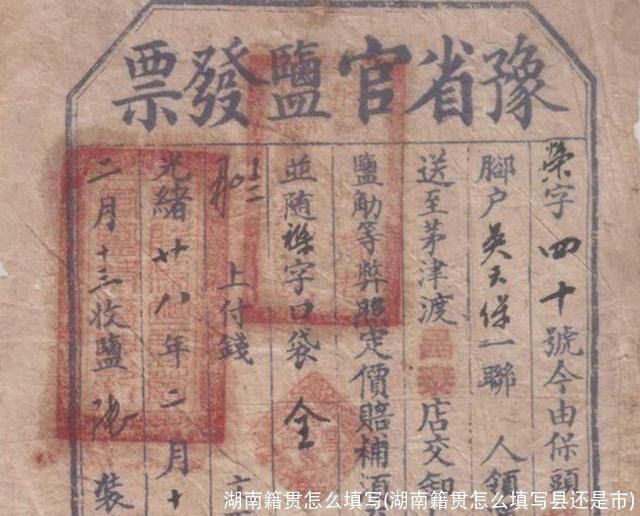 豫省官鹽發票
榮字四十號今由保頭
腳户吳天保一聯人領
送至茅津渡昌泰店交卸
鹽觔等弊照定價賠補酒
並随襟字口袋全
上付錢
光緒廿八年二月十
二月十三收鹽 裝
湖南籍贯怎么填写(湖南籍贯怎么填写县还是市)